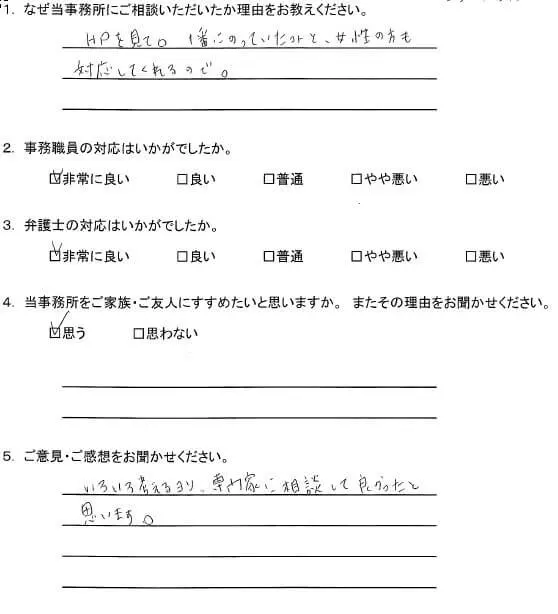 1. なぜ当事務所にご相談いただいたか理由をお教えください。
HPを見て。1番にのっていたのと、女性の方も
対応してくれるので。
2. 事務職員の対応はいかがでしたか。
☑非常に良い □良い □普通 □やや悪い □悪い
3. 弁護士の対応はいかがでしたか。
☑非常に良い □良い □普通 □やや悪い □悪い
4. 当事務所をご家族・ご友人にすすめたいと思いますか。 またその理由をお聞かせください。
☑思う □思わない
5. ご意見・ご感想をお聞かせください。
いろいろ考えるヨリ、専門家に相談して良かったと
思います。